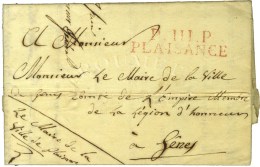 P. 111. P.
PLAISANCE
A Monsieur
Monsieur Le Maire de la Ville
de Gênes Comte de L'Empire Membre
de La Légion d'honneur
à Gênes
Le Maire de la
Ville de Plaisance